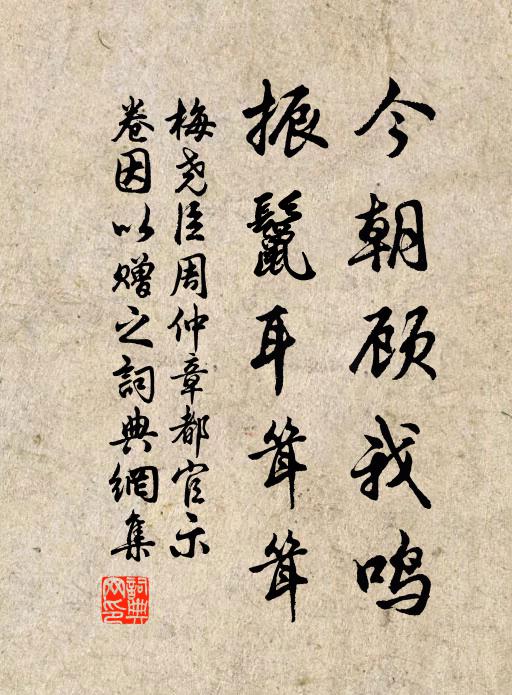 今朝顾我鸣
振鬣耳耸耸
梅尧臣周仲章都官示
卷因以赠之詞典網集
詞典網印